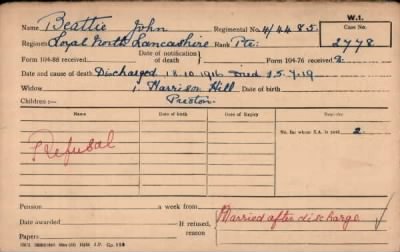 W.1.
Name Beattie John Regimental No. 4/4485 Case No.
Regiment Loyal North Lancashire Rank Pte: 2778
Form 104-88 received Date of notification of death Form 104-76 received
Date and cause of death Discharged 18.10.1916 Died 25.7.19
Widow 1, Harrison Hill Date of birth
Children:— Preston.
Names Date of birth Date of Expiry Remarks
No. for whom S.A. is paid 2
Refusal
Pension a week from Married after discharge
Date awarded If refused, reason
Papers